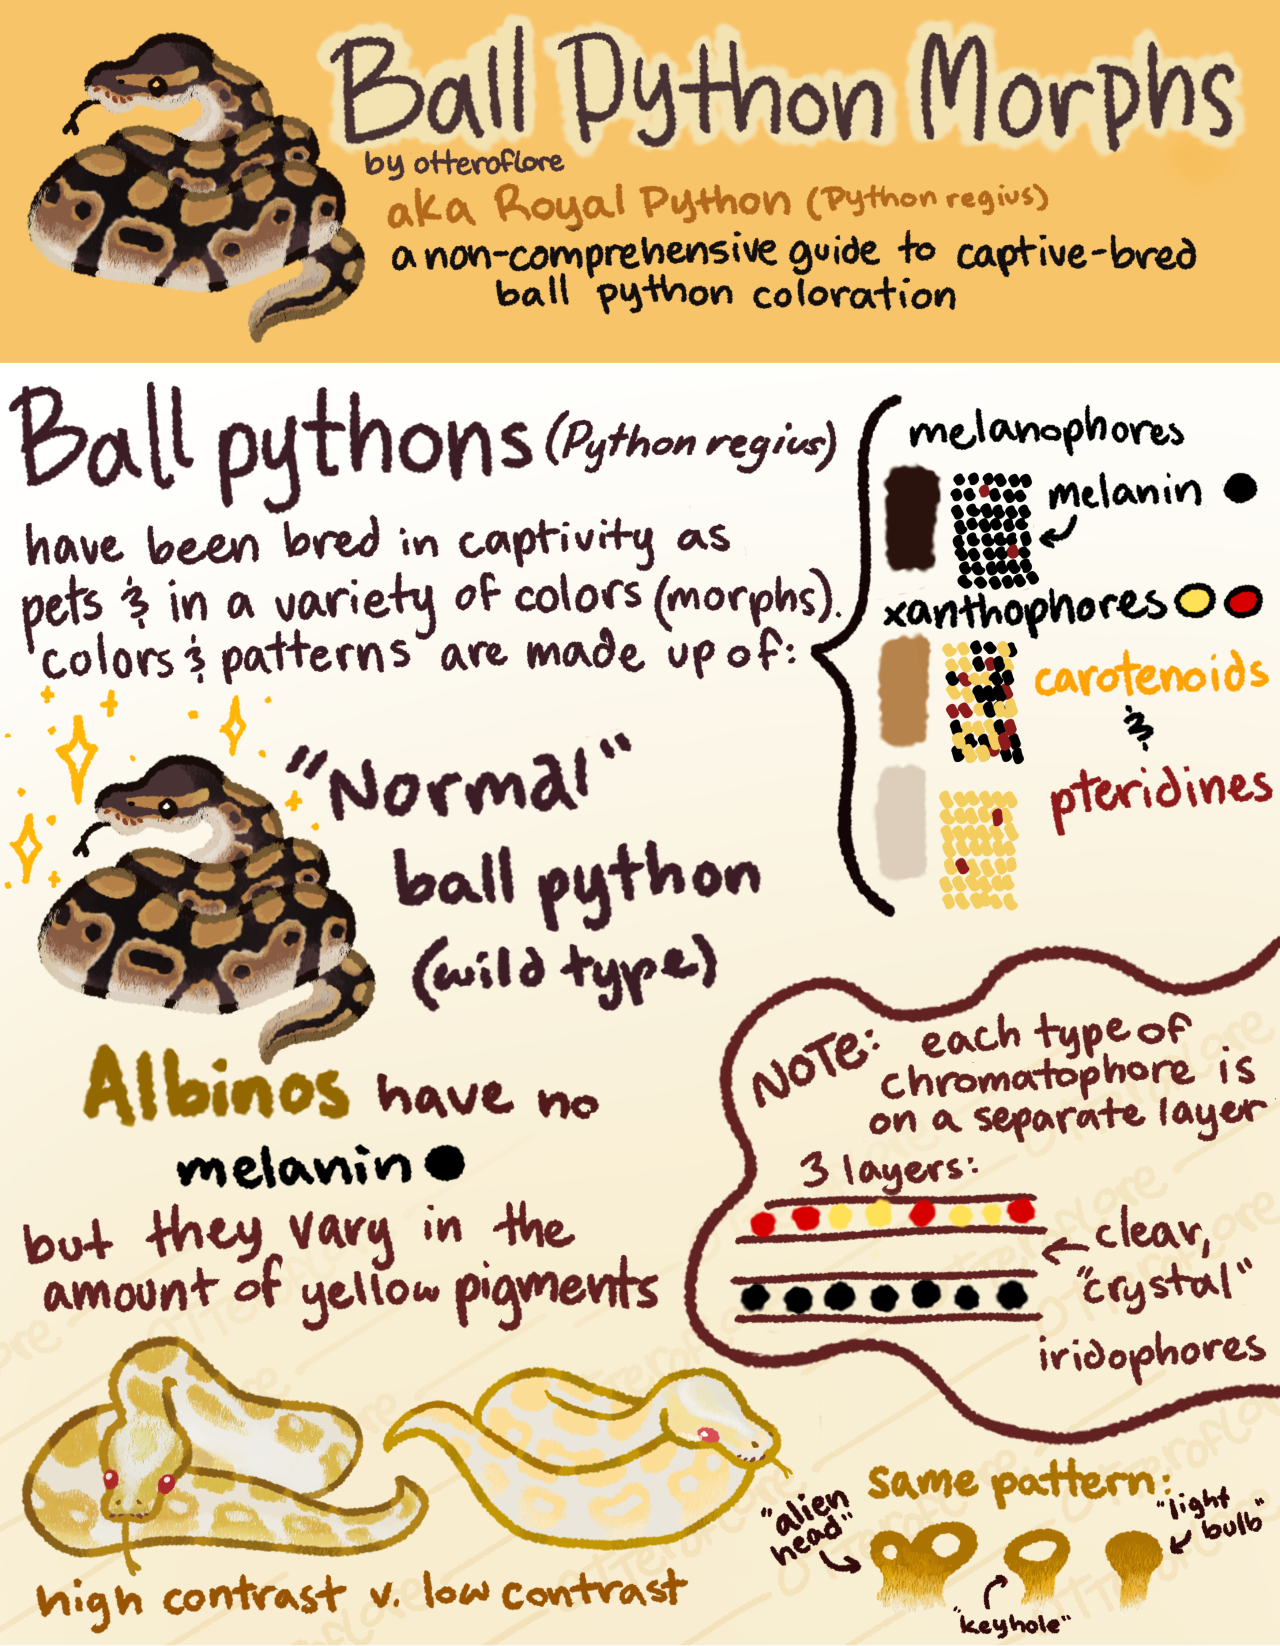 Ball Python Morphs
by otteroflore
aka Royal Python (Python regius)
a non-comprehensive guide to captive-bred
ball python coloration
Ball pythons (Python regius)
have been bred in captivity as
pets & in a variety of colors (morphs).
colors & patterns are made up of:
melanophores
melanin
xanthophores
carotenoids
&
pteridines
"Normal"
ball python
(wild type)
Albinos have no
melanin
but they vary in the
amount of yellow pigments
NOTE: each type of
chromatophore is
on a separate layer
3 layers:
clear,
"crystal"
iridophores
high contrast v. low contrast
same pattern:
"alien
head"
"keyhole"
"light
bulb"
otteroflore